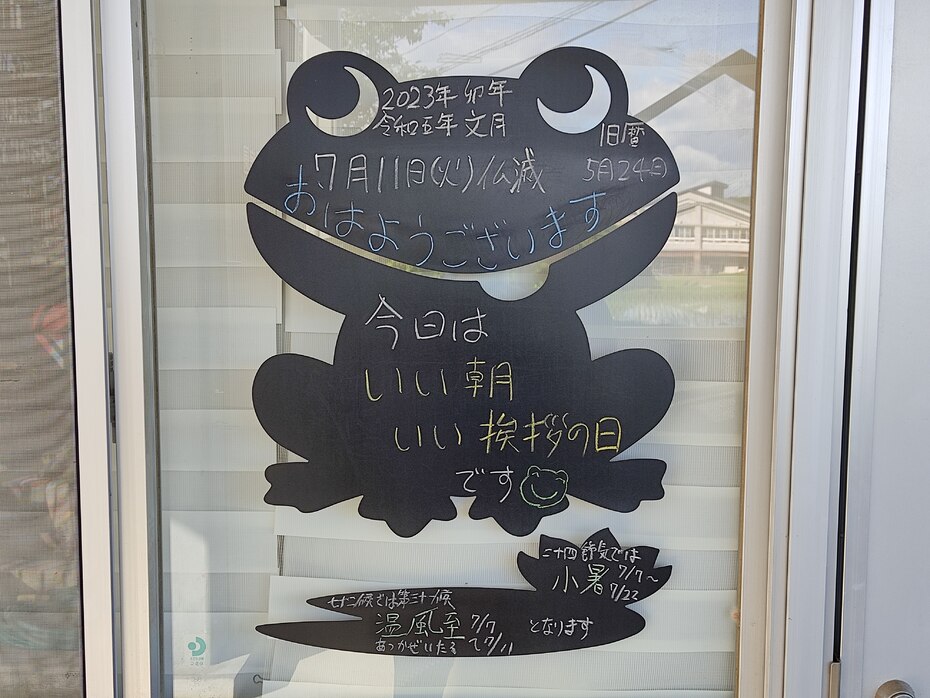 2023年 卯年
令和五年 文月
旧暦
5月24日
7月11日(火)仏滅
おはようございます
今日は
いい朝
いい挨拶の日
です
二十四節気では
小暑 7/7〜
7/22
七十二候では第三十一候
温風至 7/7
あつかぜいたる 〜7/11
となります